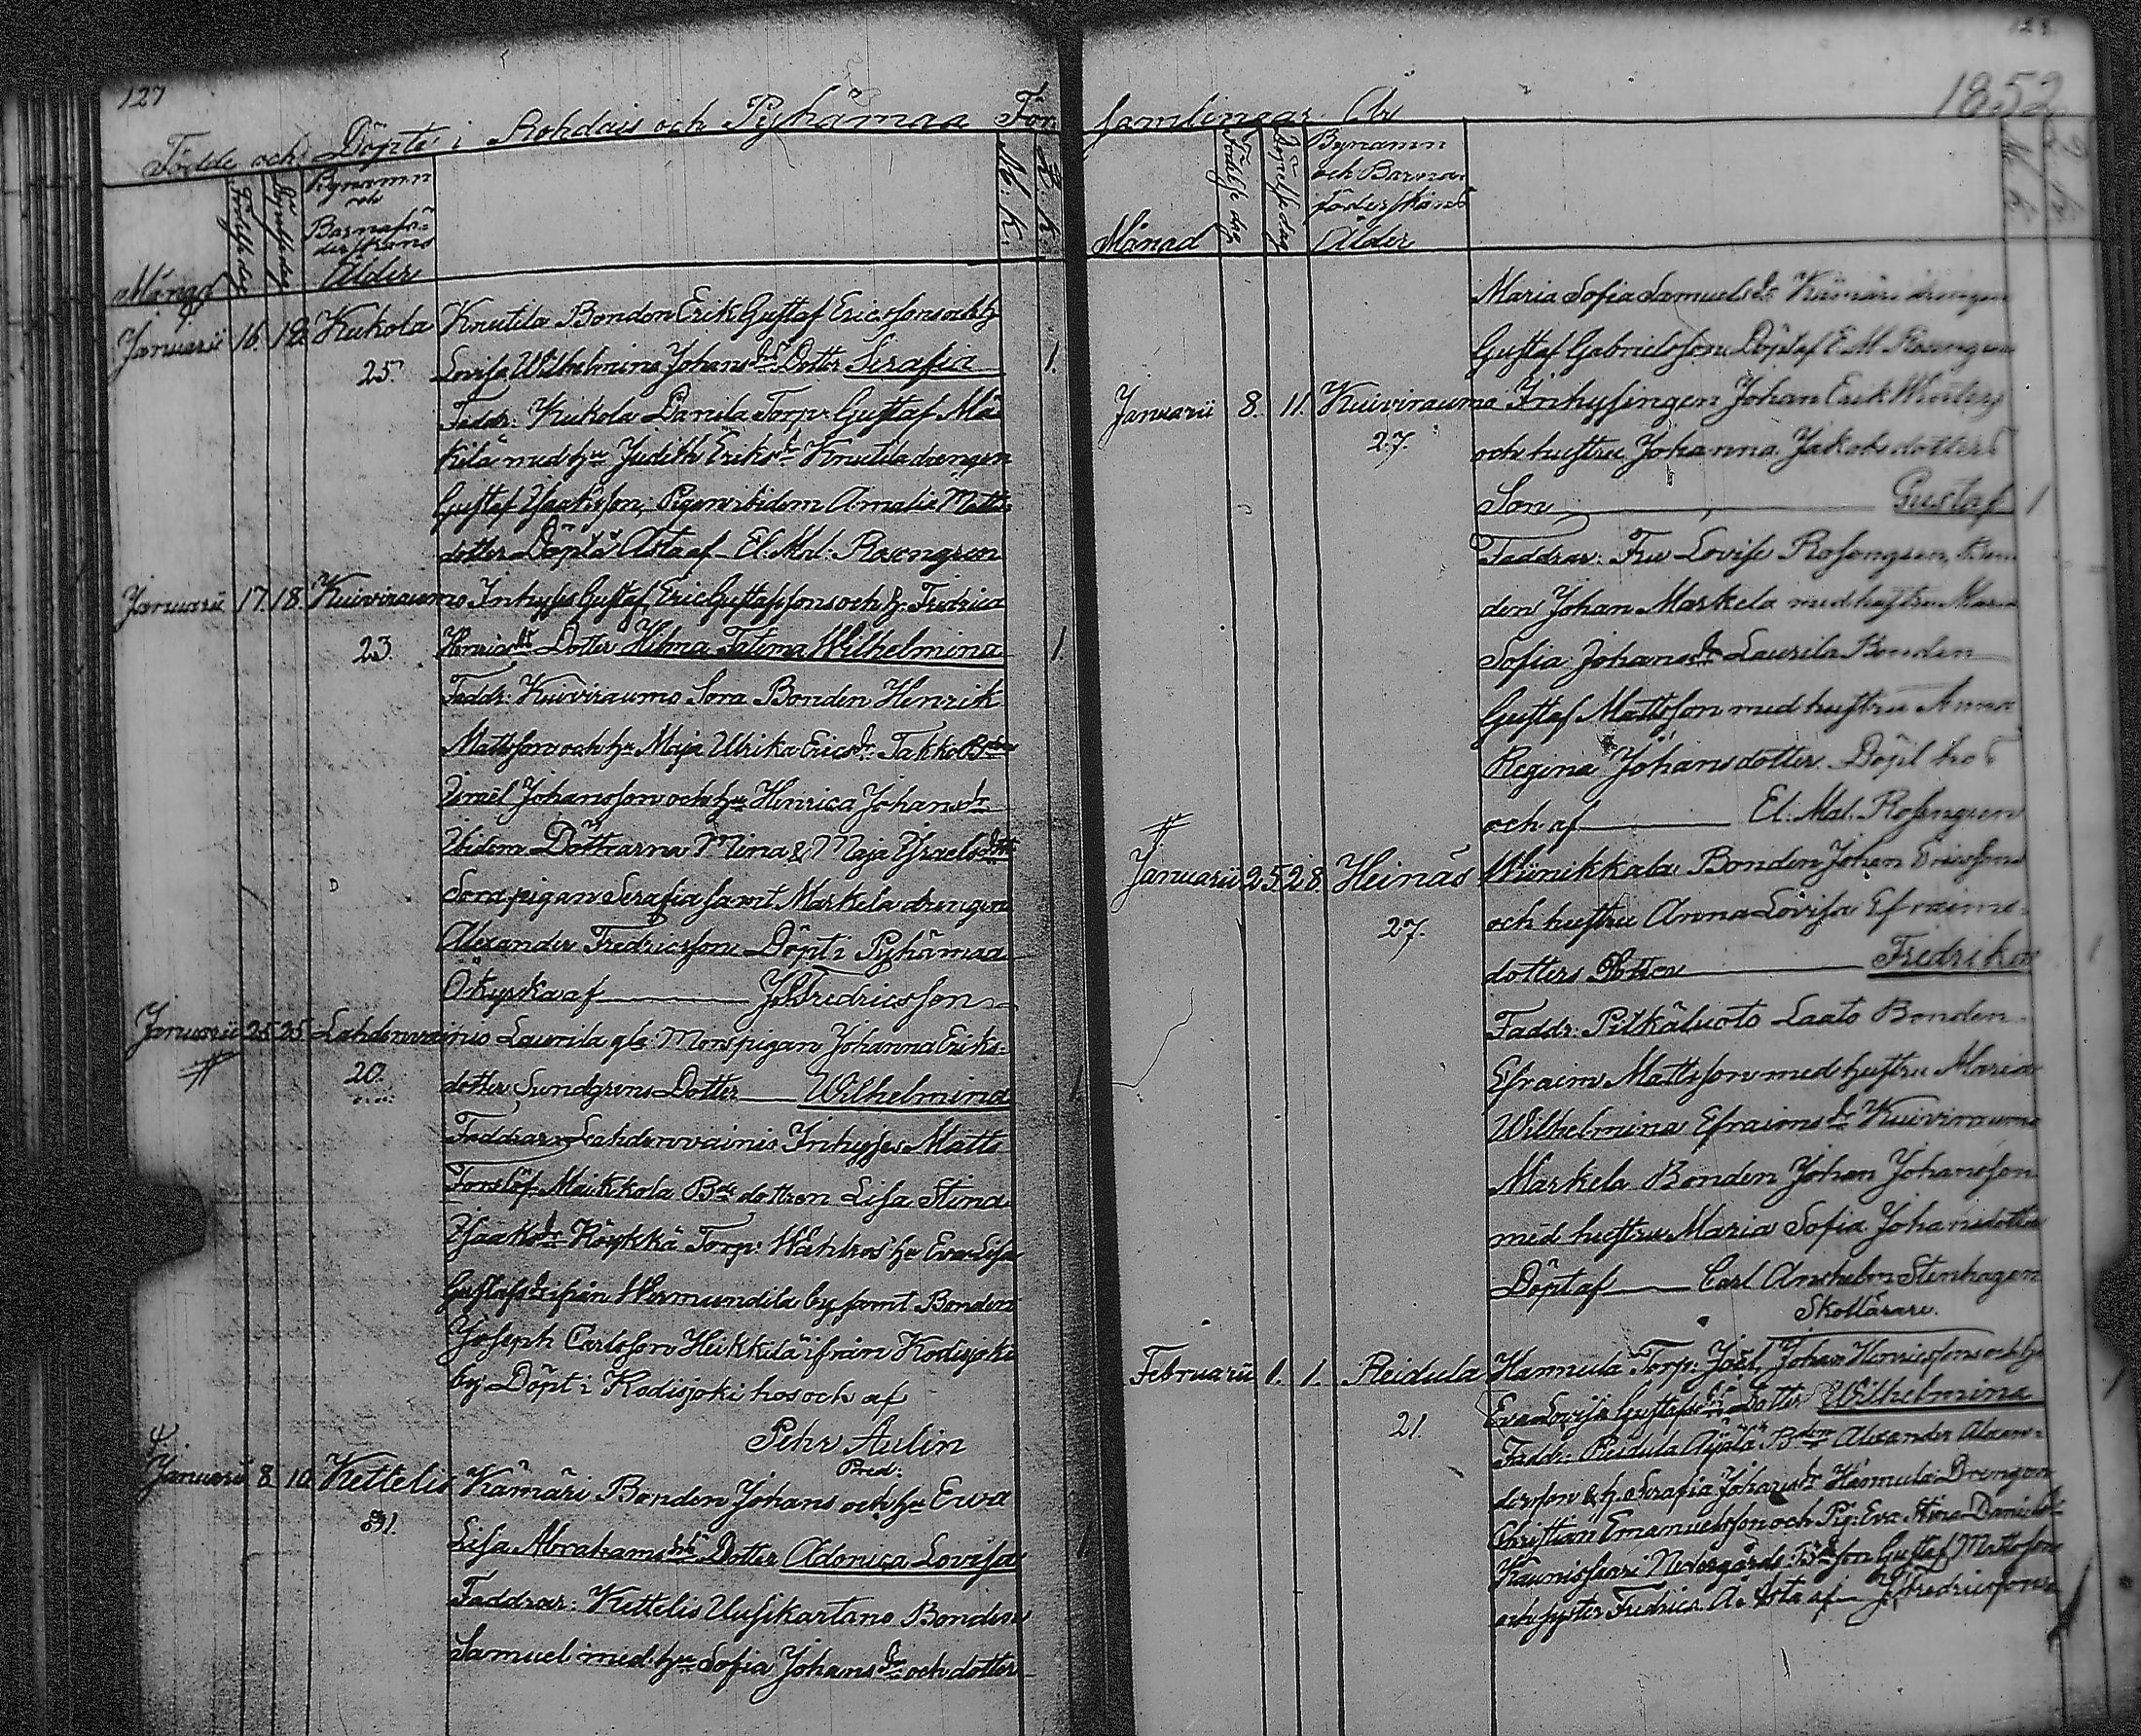 127
Födde och Döpte i Rohdais och Pyhämaa För
Månad
Födelse dag
Döpelse dag
Bynamn
och
Barnafö-
derskans
Ålder
M. K.
Q. K.
Januarii 16. 18. Kukola Knutila Bonden Erik Gustaf Ericssons och h
25. Lovisa Wilhelmina Johansdrs Dotter Serafia 1.
Faddr: Kukola Danila Torp: Gustaf Mä
kilä med hu Judith Eriksdr Knutila drengen
Gustaf Isaksson, Pigan ibidem Amalia Matts
dotter Döpt Asta af El. Mal. Rosengren
Januarii 17. 18. Kuiviraumo Inhyses Gustaf Eric Gustafssons och h. Fredrica
23. Henricsdrs Dotter Hilma Fatima Wilhelmina 1.
Faddr: Kuiviraumo Sora Bonden Henrik
Mattsson och hu Maja Ulrika Ericsdr. Takko Bden
Ismël Johansson och hu Henrica Johansdr
Ibidem Döttrarna Mina & Maja Israelsdttr
Sora pigan Serafia samt Markela drengen
Alexander Fredricsson Döpt i Pyhämaa
Ö kyrka af J Fredricsson
Januarii 25 25 Lahdenvainio Laurila gla Mors pigan Johanna Eriks-
20. dotter Sundgrens Dotter Wilhelmina 1
Faddrar Lahdenvainio Inhyses Matts
Forslöf Maikkola Bde dottren Lisa Stina
Isaksdr Köykkä Torp: Wahlros hu Eva Lisa
Gustafsdr ifrån Wermundila by samt Bonden
Joseph Carlsson Heikkilä ifrån Kodisjoki
by. Döpt i Kodisjoki hos och af
Pehr Aulin
Pred:
Januarii 8 10. Kettelis Kämäri Bonden Johans och hu Ewa
31. Lisa Abrahamsdrs Dotter Adorica Lovisa 1
Faddrar: Kettelis Uusikartano Bonden
Samuel med hu Sofia Johansdr och dotter
128
samlingar År 1852
Månad
Födelse dag
Döpelse dag
Bynamn
och Barna-
föderskans
Ålder
M. K.
Q. K.
Maria Sofia Samuelsdr Kämäri drengen
Gustaf Gabrielsson Döpt af E. M. Rosengren
Januarii 8. 11. Kuiviraumo Inhysingen Johan Erik
27. och hustru Johanna Jakobsdotters
Son Gustaf 1
Faddrar: Fru Lovise Rosengren, Bon
den Johan Markela med hustru Maria
Sofia Johansdr Laurila Bonden
Gustaf Mattsson med hustru Anna
Regina Johansdotter. Döpt hos
och af El. Mal. Rosengren
Januarii 25 28. Heinäs Wiinikkala Bonden Johan Ericssons
27. och hustru Anna Lovisa Efraims-
dotters Dotter Fredrika 1
Faddr: Pitkäluoto Laato Bonden
Efraim Mattsson med hustru Maria
Wilhelmina Efraimsdr Kuiviraumo
Markela Bonden Johan Johansson
med hustru Maria Sofia Johansdotter
Döpt af Carl Anshelm Stenhagen
Skollärare.
Februarii 1. 1. Reidula Hannula Torp: Joël Johan Henricssons och hu
21. Eva Lovisa Gustafsdrs Dotter Wilhelmina 1
Faddr: Reidula Äyälä Bden Alexander Alexan-
dersson & h. Serafia Johansdr Hannula Drengen
Christian Emanuelsson och Pig: Eva Stina Danielsdr
Kaunissaari Nedergårds Bde son Gustaf Mattsson
och syster Fredrica. Asta af J Fredricsson